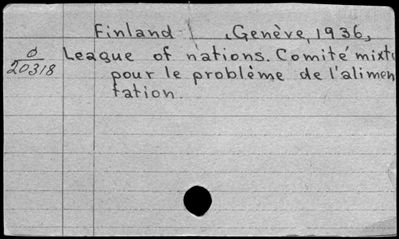 Finland , Genève, 1936,
ø League of nations. Comité mixte
20318 pour le problème de l'alimen
tation.